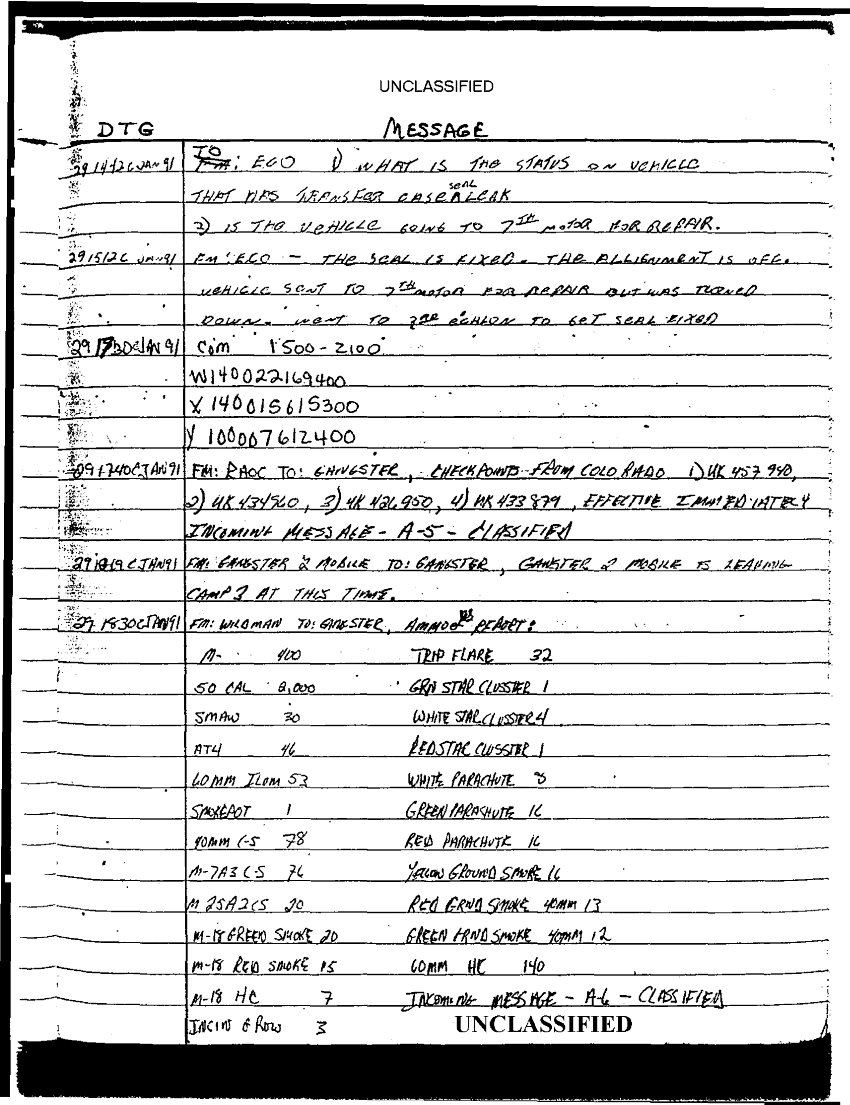 UNCLASSIFIED
DTG MESSAGE
291442CJAN91 TO: ECO 1) WHAT IS THE STATUS ON VEHICLE
THAT HAS TRANSFER CASE SEAL LEAK
2) IS THE VEHICLE GOING TO 7TH MOTOR FOR REPAIR.
291512C JAN91 FM: ECO - THE SEAL IS FIXED - THE ALLIGNMENT IS OFF.
VEHICLE SENT TO 7TH MOTOR FOR REPAIR BUT WAS TURNED
DOWN. WENT TO ECHLON TO GET SEAL FIXED
291730CJAN91 Com 1500-2100
W140022169400
X 140015615300
Y 100007612400
291740CJAN91 FM: RAOC TO: GANGSTER, CHECKPOINTS FROM COLORADO 1) UK 457940,
2) UK 434960, 3) UK 426950, 4) UK 433879, EFFECTIVE IMMEDIATELY
INCOMING MESSAGE - A-5 - CLASSIFIED
291819CJAN91 FM: GANGSTER 2 MOBILE TO: GANGSTER, GANGSTER 2 MOBILE IS LEAVING
CAMP 3 AT THIS TIME.
291830CJAN91 FM: WILDMAN TO: GANGSTER, AMMO REPORT:
M- 400 TRIP FLARE 32
50 CAL 2,000 GRN STAR CLUSSTER 1
SMAW 30 WHITE STAR CLUSSTER 4
AT4 46 RED STAR CLUSSTER 1
60MM ILUM 53 WHITE PARACHUTE 8
SMOKEPOT 1 GREEN PARACHUTE 16
40MM C-S 78 RED PARACHUTE 16
M-7A3 C-S 76 YELLOW GROUND SMOKE 16
M 25A2 CS 20 RED GRND SMOKE 40MM 13
M-18 GREEN SMOKE 20 GREEN GRND SMOKE 40MM 12
M-18 RED SMOKE 15 60MM HE 140
M-18 HC 7 INCOMING MESSAGE - A-6 - CLASSIFIED
INCIN 3 UNCLASSIFIED